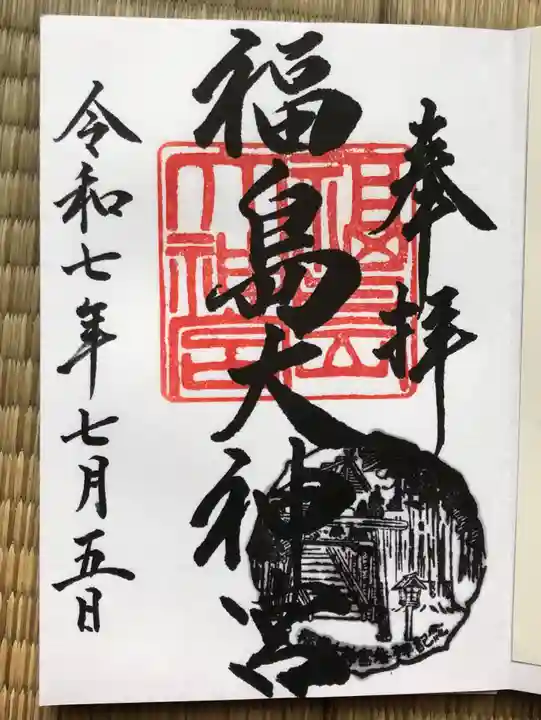 奉拝
福島大神宮
令和七年七月五日